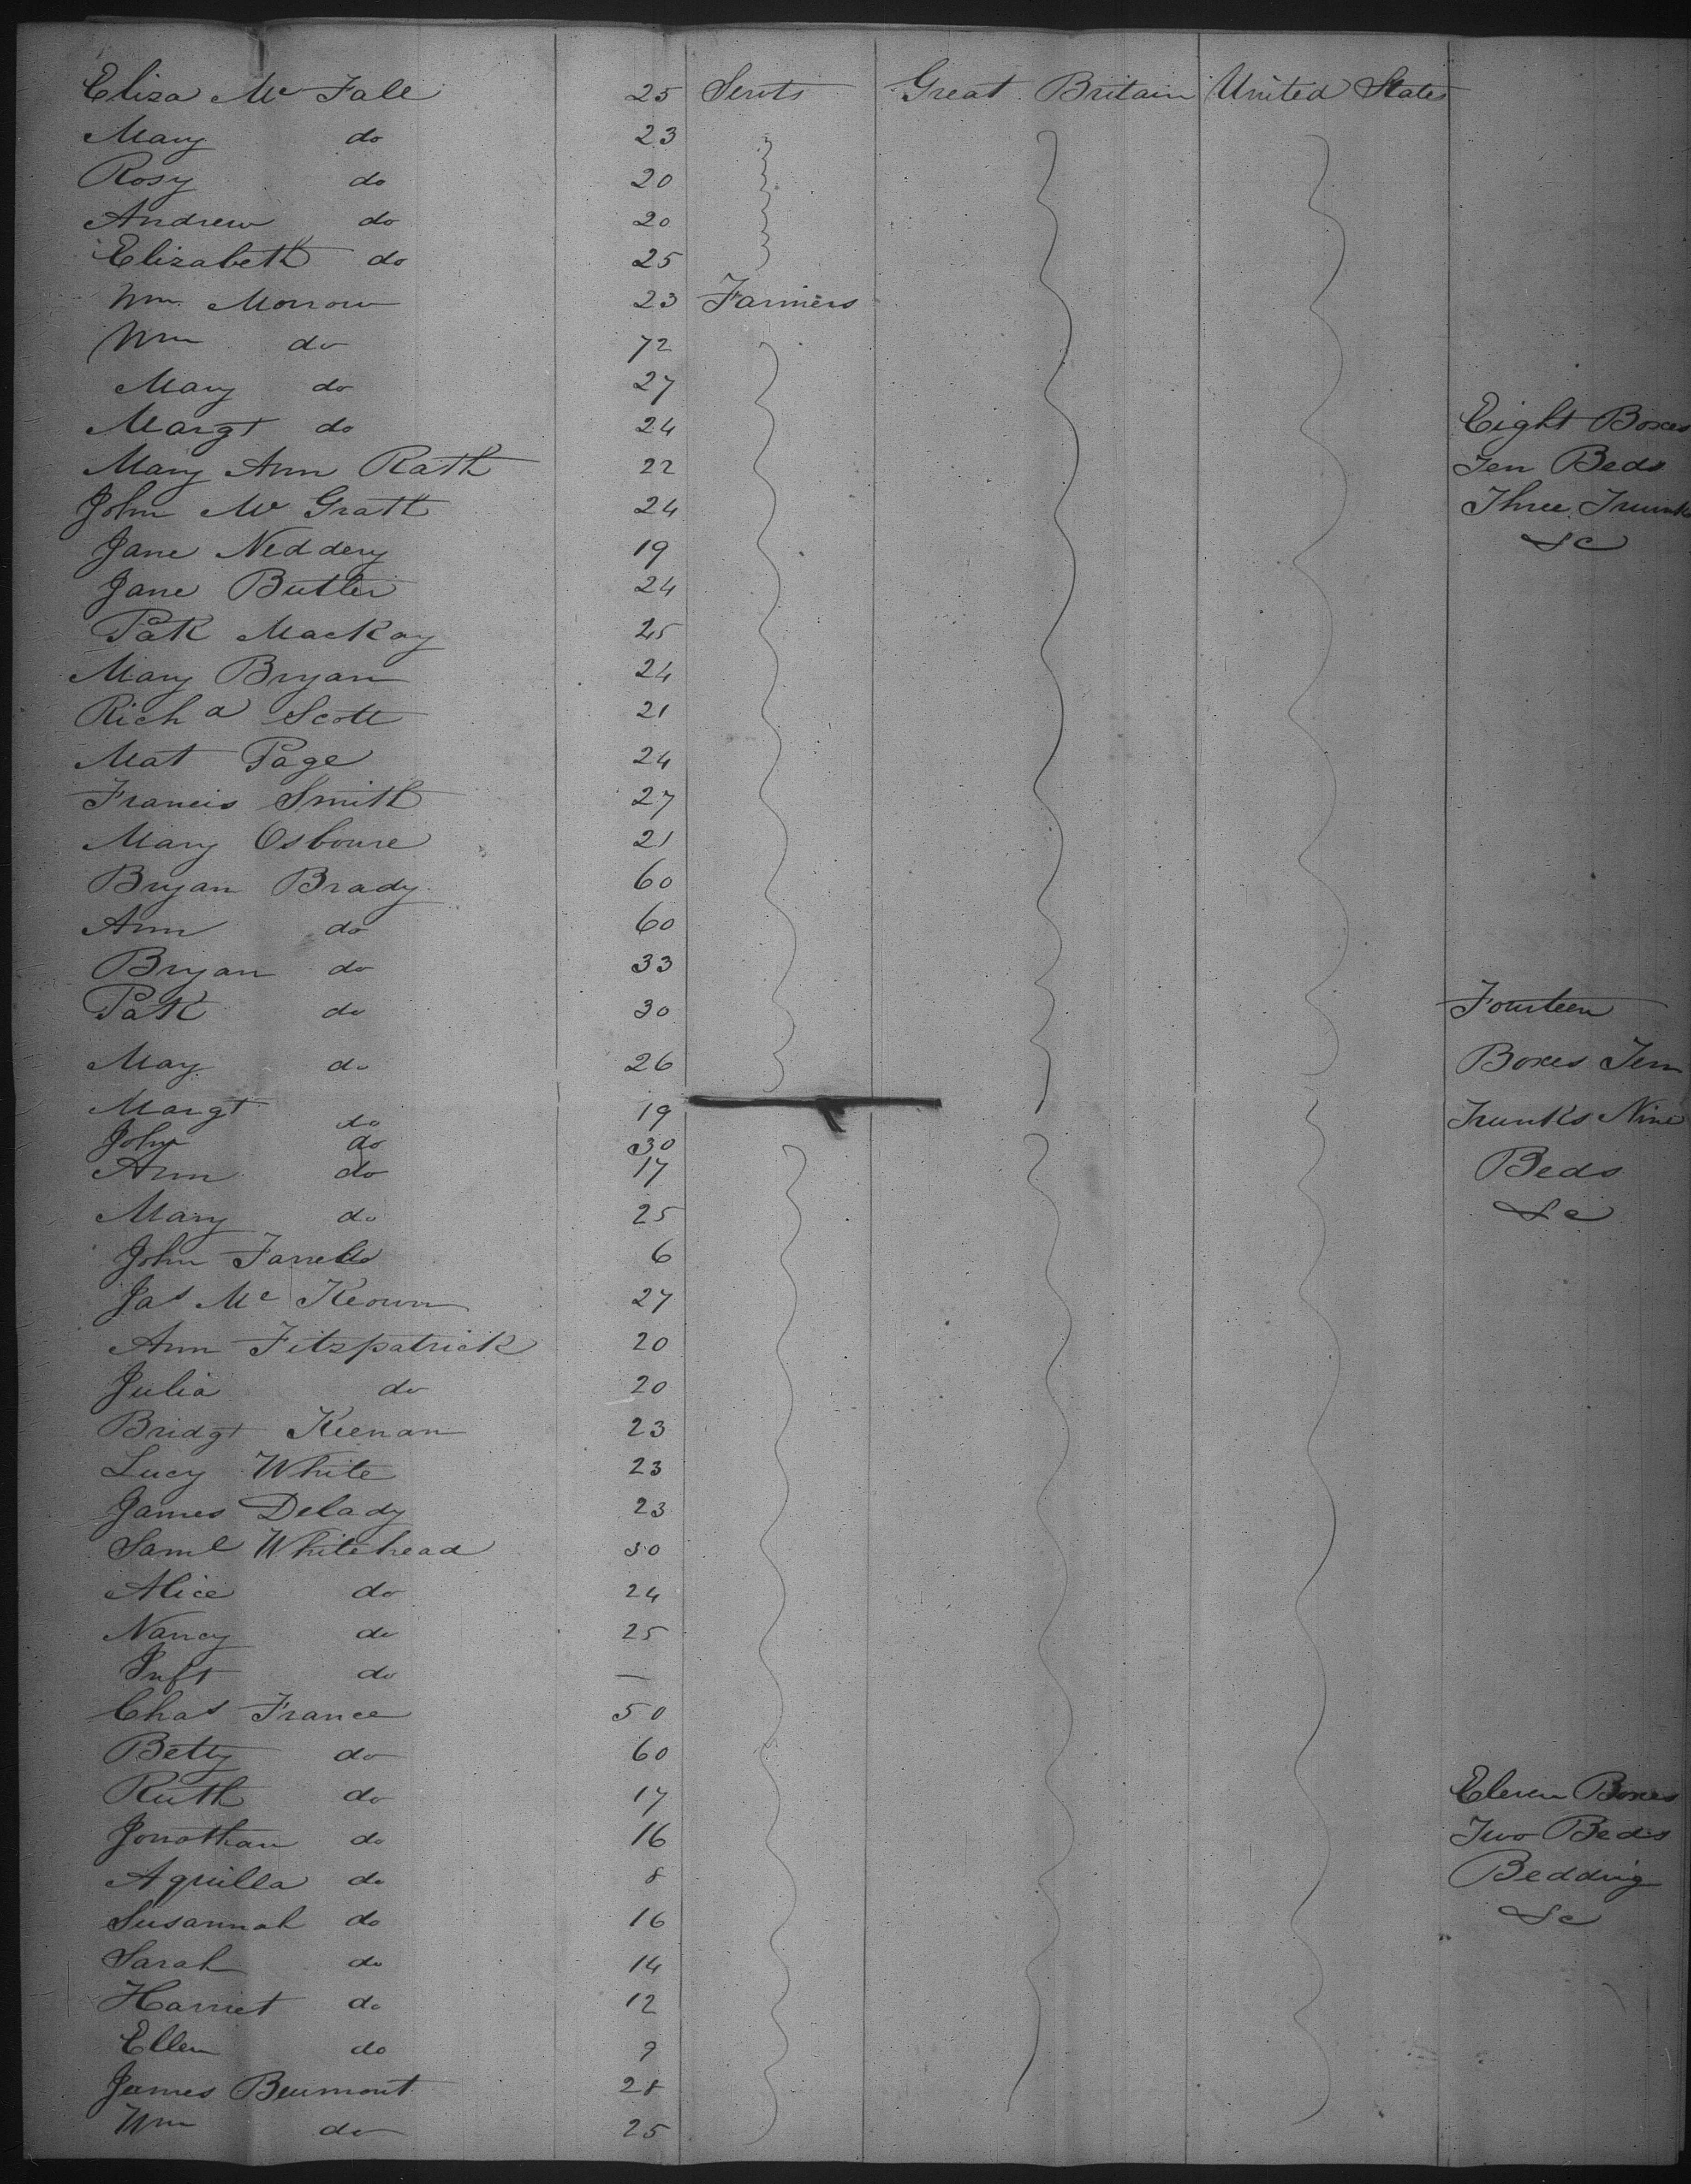 Eliza Mc Fall 25 Servts Great Britain United States
Mary do 23
Rosy do 20
Andrew do 20
Elizabeth do 25
Wm. Morrow 23 Farmers
Wm do 72
Mary do 27
Margt do 24 Eight Boxes
Mary Ann Rath 22 Ten Beds
John Mc Grath 24 Three Trunks
Jane Neddery 19 &c
Jane Butler 24
Patk Mackay 25
Mary Bryan 24
Richd Scott 21
Mat Page 24
Francis Smith 27
Mary Osboure 21
Bryan Brady 60
Ann do 60
Bryan do 33
Patk do 30 Fourteen
May do 26 Boxes Ten
Margt do 19 Trunks Nine
John do 30
Ann do 17 Beds
Mary do 25 &c
John 6
Jas Mc Keown 27
Ann Fitzpatrick 20
Julia do 20
Bridgt Keenan 23
Lucy White 23
James Delady 23
Saml Whitehead 30
Alice do 24
Nancy do 25
Inft do —
Chas France 50
Betty do 60
Ruth do 17 Eleven Boxes
Jonathan do 16 Two Beds
Aquilla do 8 Bedding
Susannah do 16 &c
Sarah do 14
Harriet do 12
Ellen do
James Beumont 28
Wm do 25